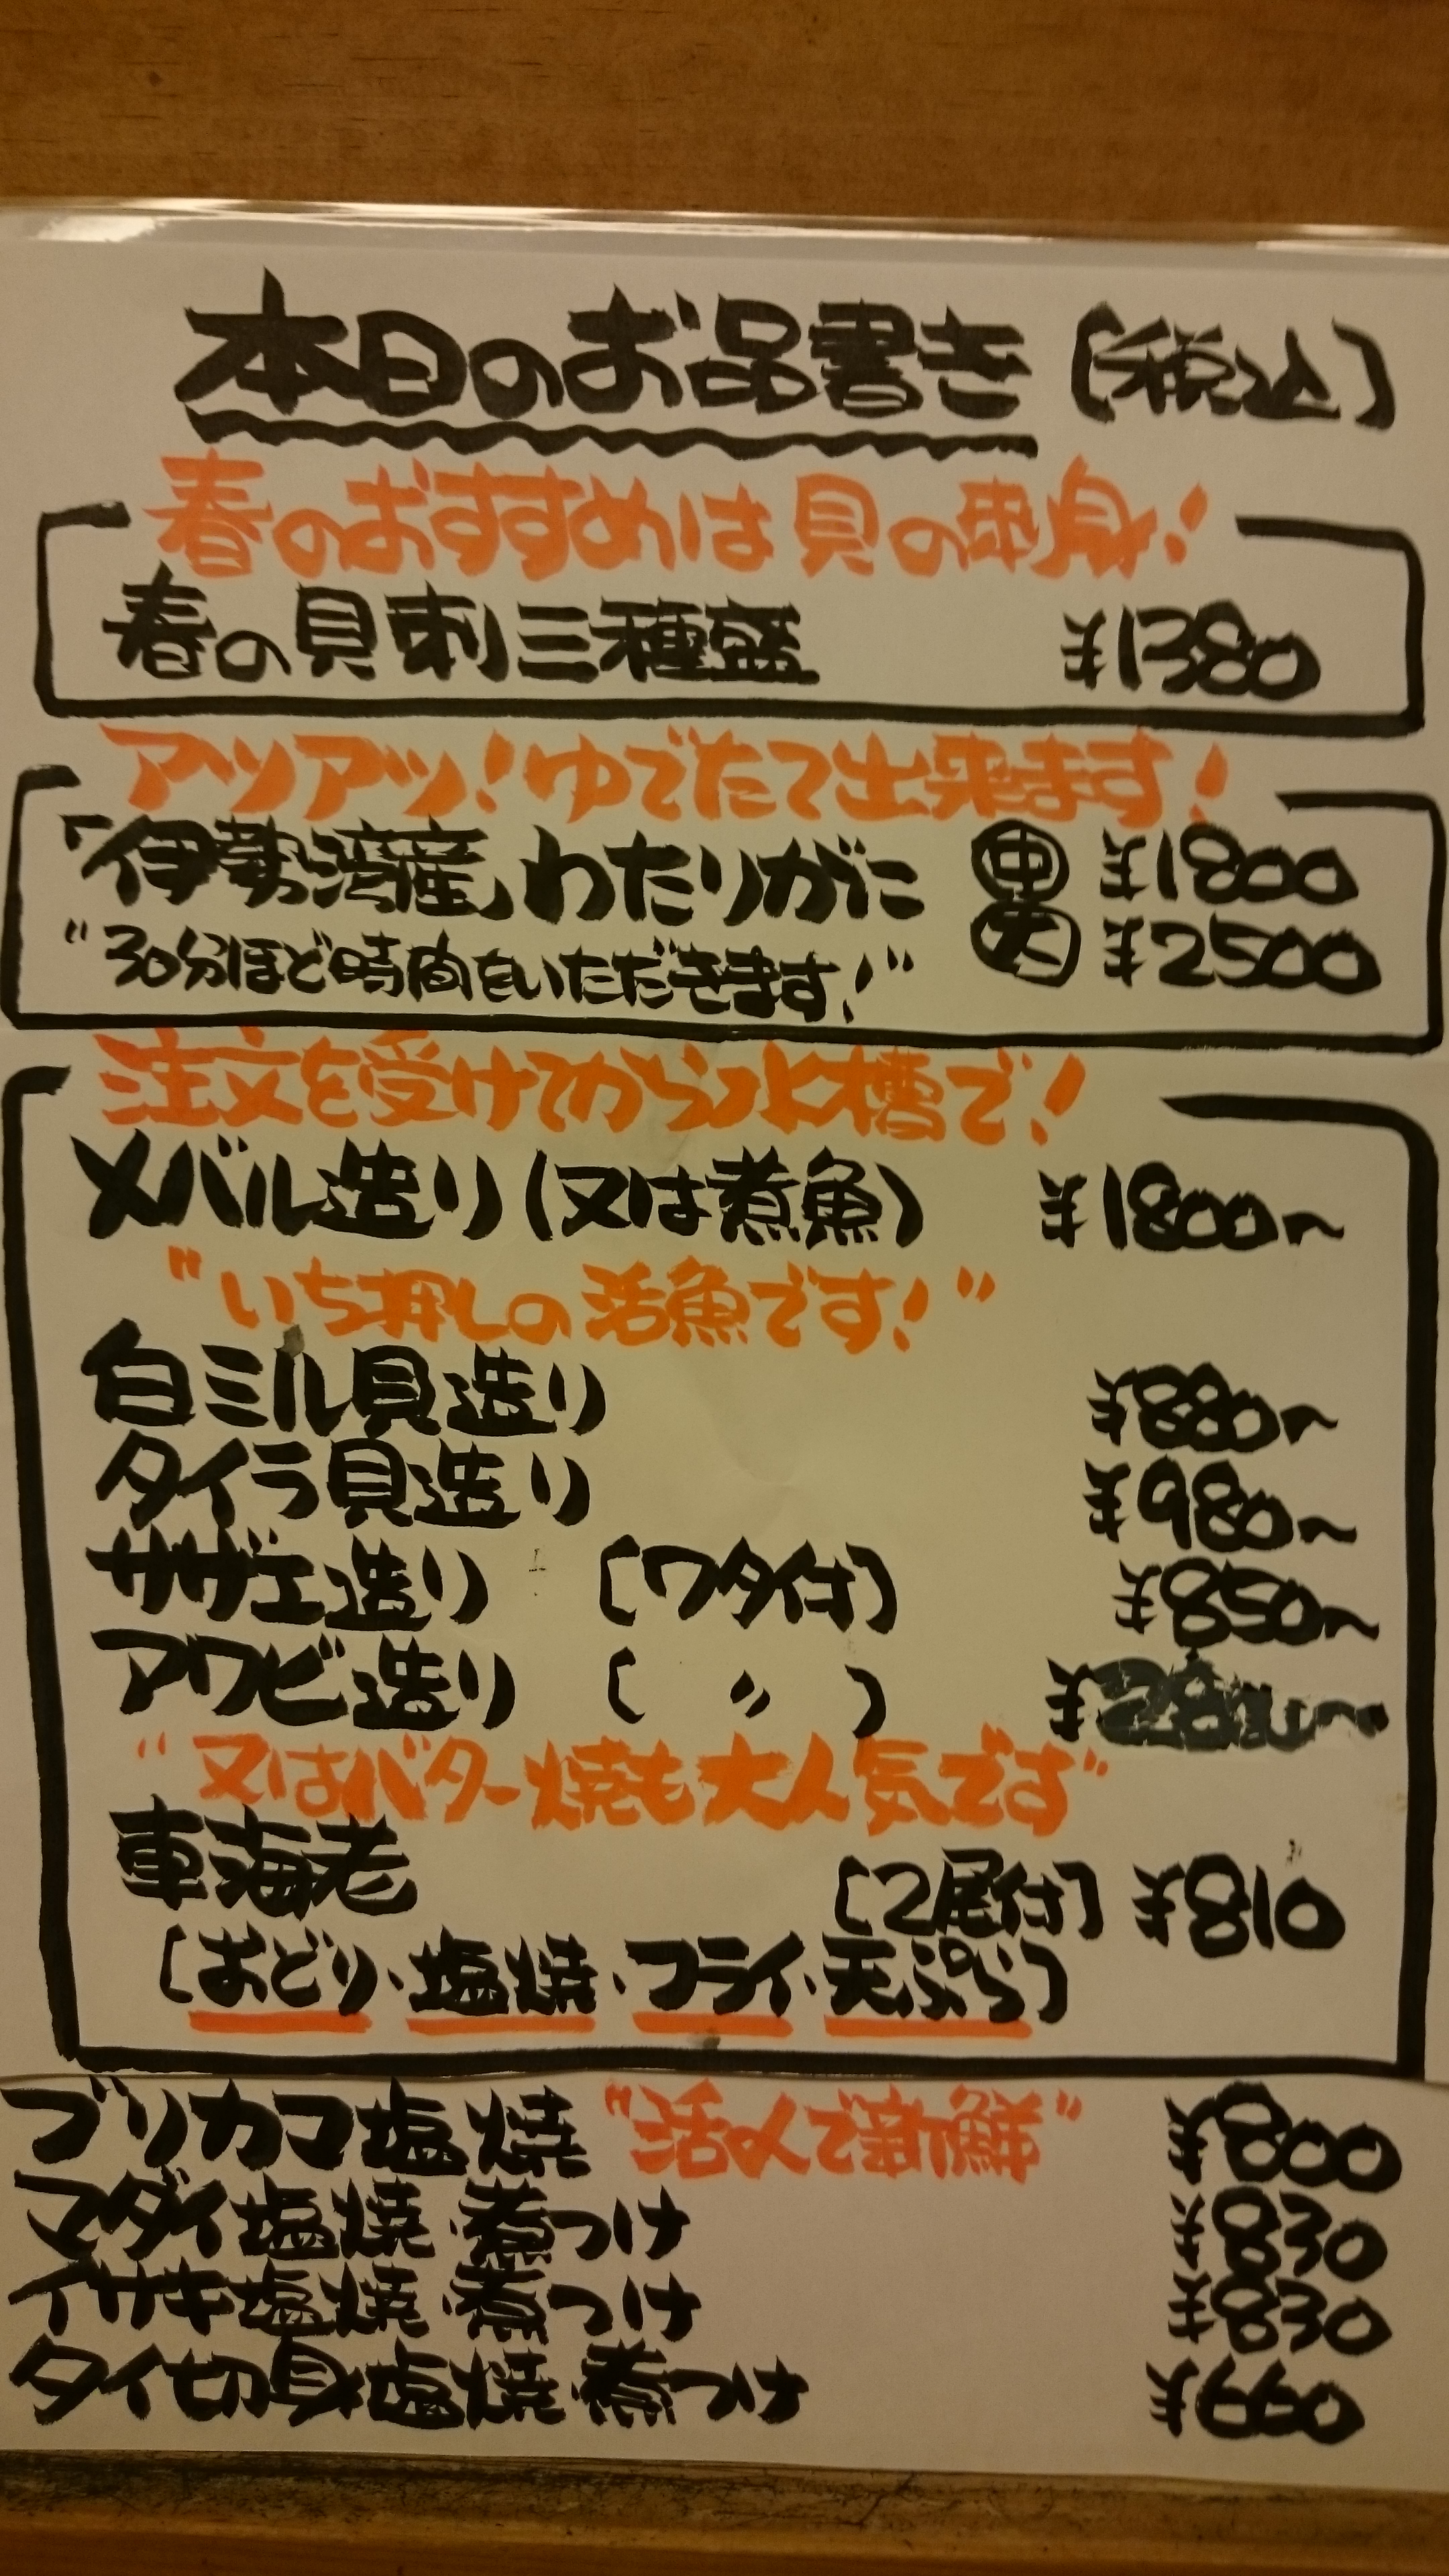 本日のお品書き [税込]
春のおすすめは貝の刺身!
春の貝刺三種盛 ¥1380
アツアツ!ゆでたて出来ます!
「伊勢湾産」わたりがに 中 ¥1800
大 ¥2500
"30分ほど時間をいただきます!"
注文を受けてから水槽で!
メバル造り(又は煮魚) ¥1800~
"いち押しの活魚です!"
白ミル貝造り ¥880~
タイラ貝造り ¥980~
サザエ造り [ワタ付] ¥850~
アワビ造り [ 〃 ] ¥
"又はバター焼も大人気です"
車海老 [2尾付] ¥810
[おどり・塩焼・フライ・天ぷら]
ブリカマ塩焼 "活〆で新鮮" ¥800
マダイ塩焼・煮つけ ¥830
イサキ塩焼・煮つけ ¥830
タイ切身塩焼・煮つけ ¥990